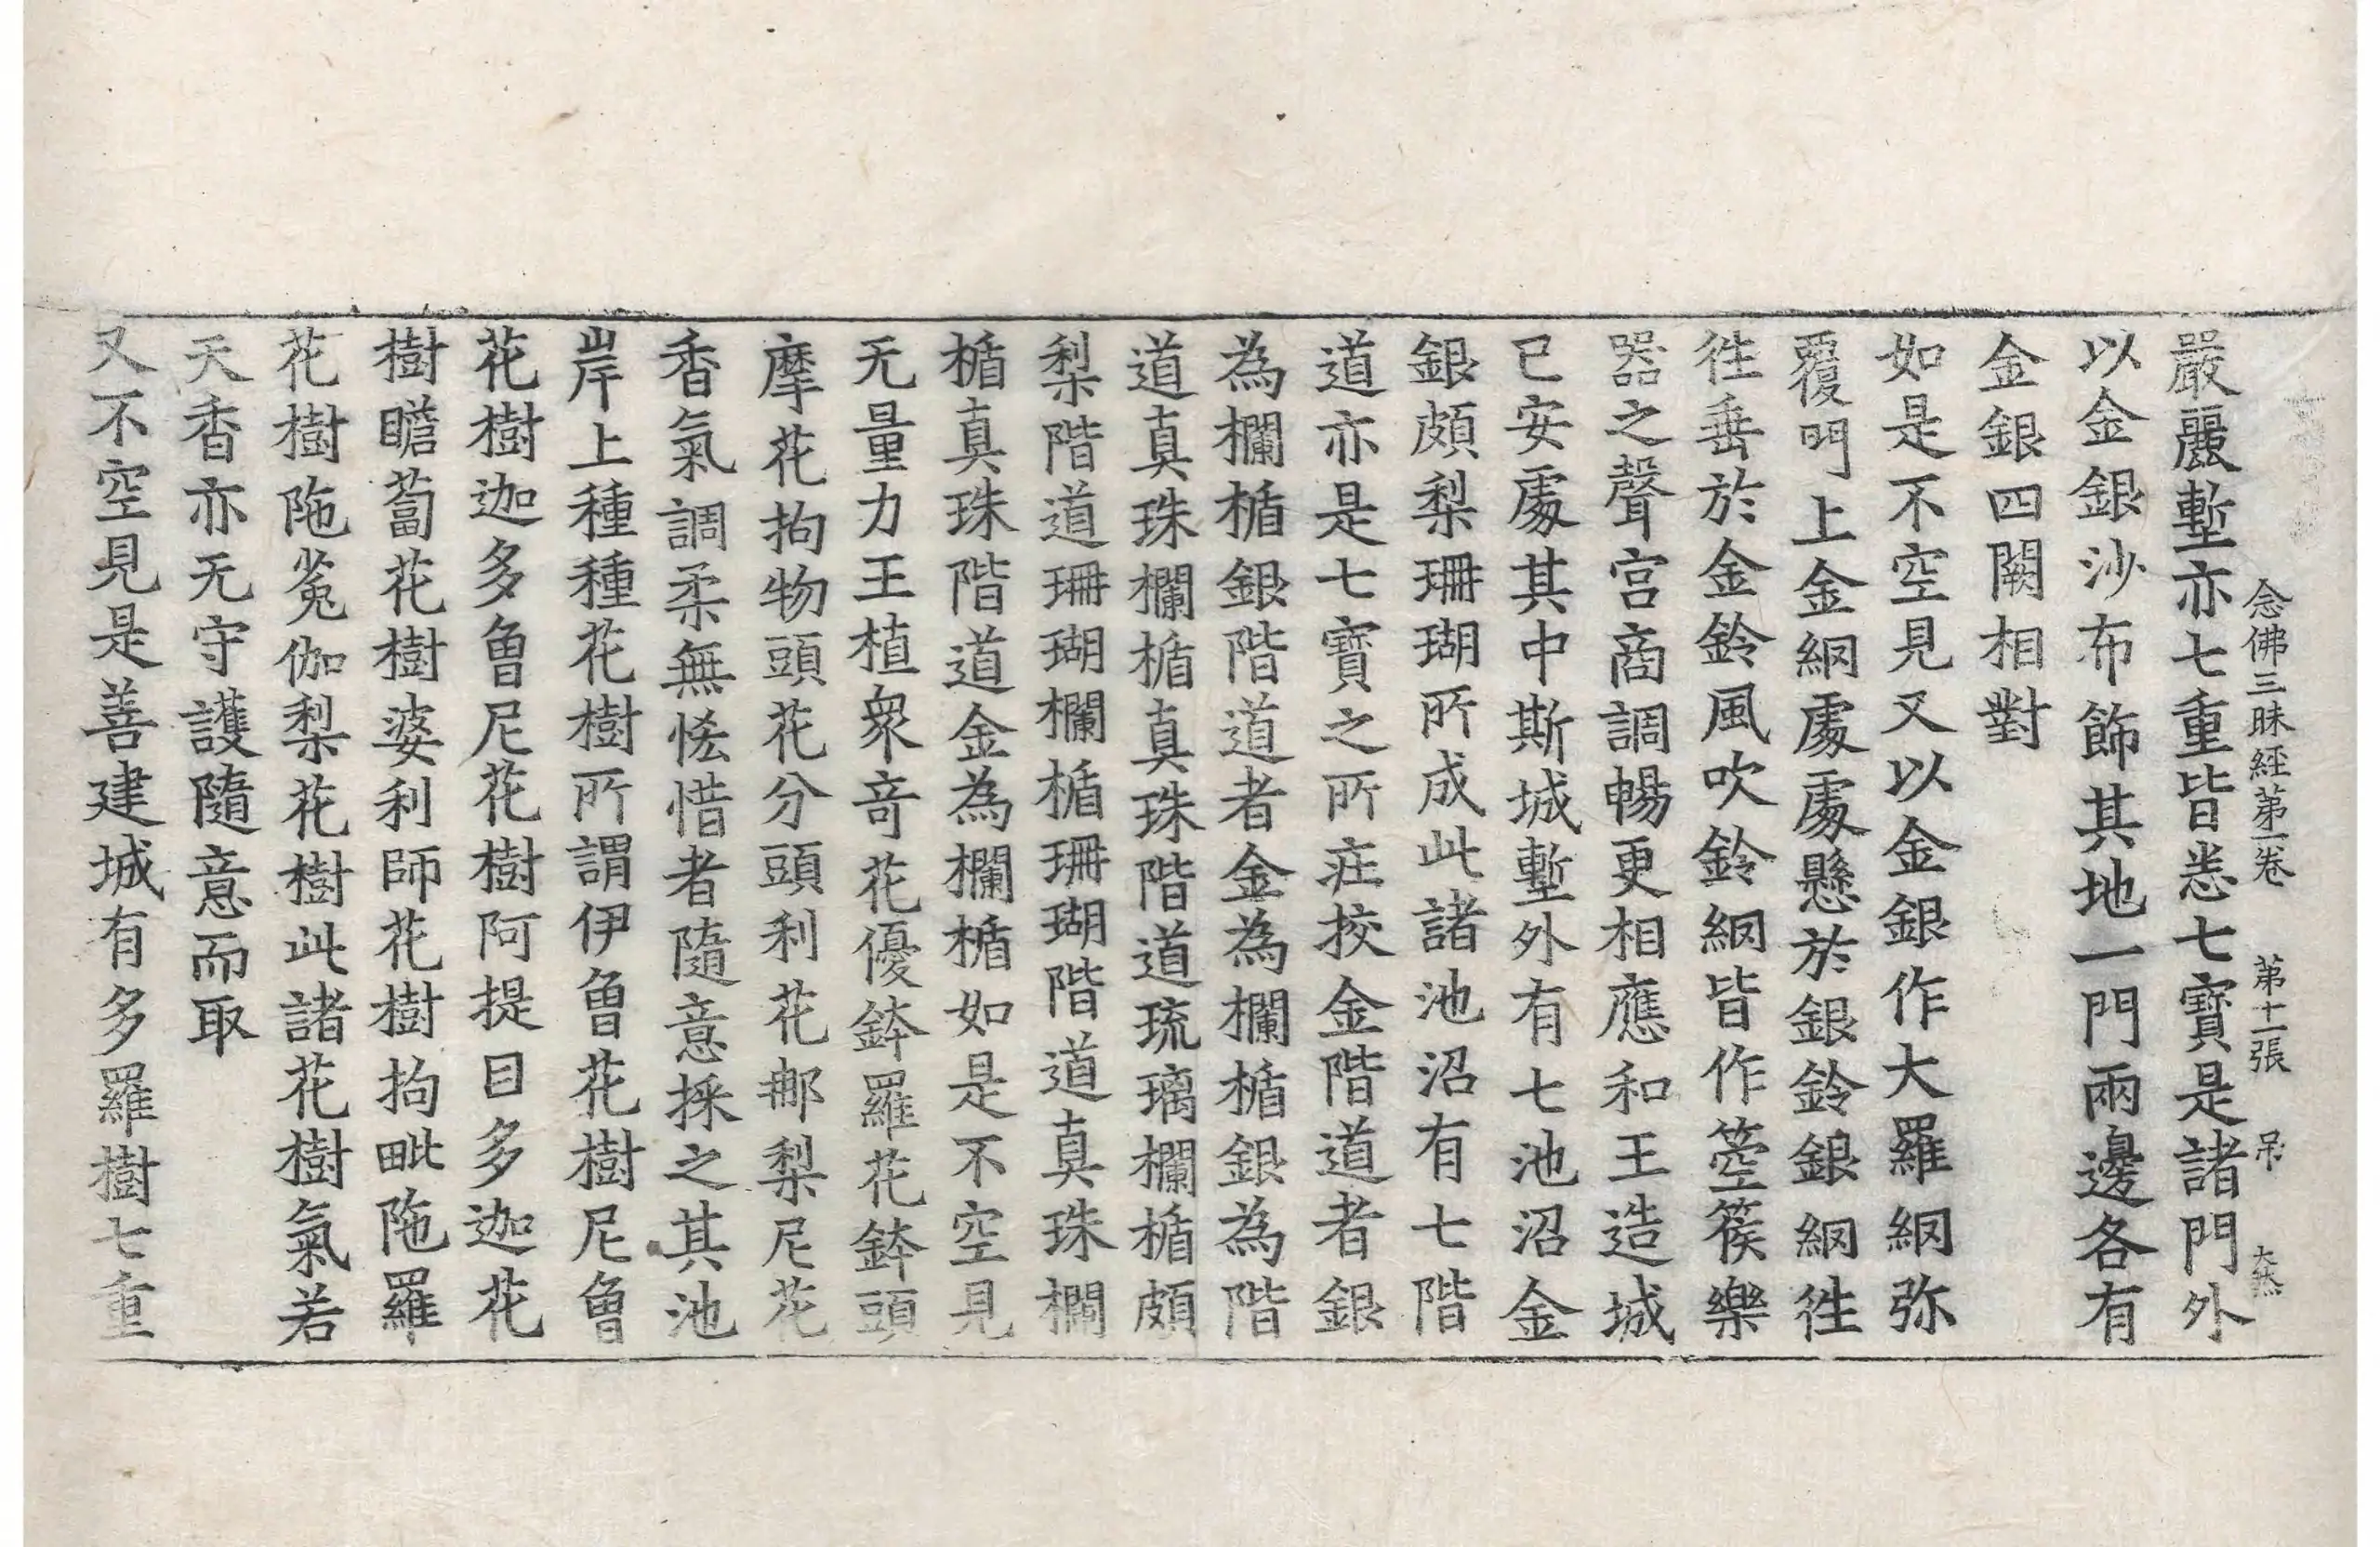 念佛三昧經第一卷　第十一張　吊　大然
嚴麗塹亦七重皆悉七寶是諸門外
以金銀沙布飾其地一門兩邊各有
金銀四闕相對
如是不空見又以金銀作大羅網弥
覆門上金網處處懸於銀鈴銀網徃
徃垂於金鈴風吹鈴網皆作箜篌樂
器之聲宮商調暢更相應和王造城
已安處其中斯城塹外有七池沼金
銀頗梨珊瑚所成此諸池沼有七階
道亦是七寶之所庄挍金階道者銀
為欄楯銀階道者金為欄楯銀為階
道真珠欄楯真珠階道琉璃欄楯頗
梨階道珊瑚欄楯珊瑚階道真珠欄
楯真珠階道金為欄楯如是不空見
无量力王植衆竒花優鉢羅花鉢頭
摩花拘物頭花分頭利花那梨尼花
香氣調柔無悋惜者隨意採之其池
岸上種種花樹所謂伊魯花樹尼魯
花樹迦多魯尼花樹阿提目多迦花
樹瞻蔔花樹婆利師花樹拘毗陁羅
花樹陁㝹伽梨花樹此諸花樹氣若
天香亦无守護隨意而取
又不空見是善建城有多羅樹七重